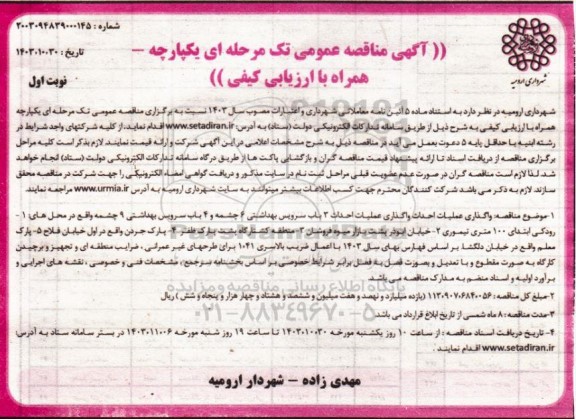 شماره : ۲۰۰۳۰۹۴۸۳۹۰۰۰۱۴۵
تاریخ : ۱۴۰۳،۱۰،۳۰
نوبت اول
شهرداری ارومیه
(( آگهی مناقصه عمومی تک مرحله ای یکپارچه –
همراه با ارزیابی کیفی ))
شهرداری ارومیه در نظر دارد به استناد ماده ۵ آئین نامه معاملاتی شهرداری و اعتبارات مصوب سال ۱۴۰۳ نسبت به برگزاری مناقصه عمومی تک مرحله ای یکپارچه
همراه با ارزیابی کیفی به شرح ذیل از طریق سامانه تدارکات الکترونیکی دولت (ستاد) به آدرس www.setadiran.ir اقدام نماید. از کلیه شرکتهای واجد شرایط در
رشته ابنیه با حداقل پایه ۵ دعوت بعمل می آید در مناقصه ذیل به شرح مشخصات اعلامی در این آگهی شرکت و ارائه قیمت نمایند. لازم بذکر است کلیه مراحل
برگزاری مناقصه از دریافت اسناد تا ارائه پیشنهاد قیمت مناقصه گران و بازگشایی پاکت ها از طریق درگاه سامانه تدارکات الکترونیکی دولت (ستاد) انجام خواهد
شد. لذا لازم است مناقصه گران در صورت عدم عضویت قبلی مراحل ثبت نام در سایت مذکور و دریافت گواهی امضاء الکترونیکی را جهت شرکت در مناقصه محقق
سازند. لازم به ذکر می باشد شرکت کنندگان محترم جهت کسب اطلاعات بیشتر میتوانند به سایت شهرداری ارومیه به آدرس www.urmia.ir مراجعه نمایند.
۱-موضوع مناقصه: واگذاری عملیات احداث واگذاری عملیات احداث ۳ باب سرویس بهداشتی ۶ چشمه و ۴ باب سرویس بهداشتی ۹ چشمه واقع در محل های ۱-
رودکی ابتدای ۱۰۰ متری تیموری ۲- خیابان ابوذر پشت بازار میوه فروشان ۳- منطقه گلمارک پشت پارک ظفر ۴- پارک جردن واقع در اول خیابان فلاح ۵- پارک
معلم واقع در خیابان دلگشا بر اساس فهارس بهای سال ۱۴۰۳ با اعمال ضریب بالاسری ۱.۴۱ برای طرحهای غیر عمرانی ، ضرایب منطقه ای و تجهیز و برچیدن
کارگاه به صورت مقطوع و با تعدیل و بصورت فصل به فصل برابر شرایط خصوصی بر اساس بخشنامه سرجمع، مشخصات فنی و خصوصی ، نقشه های اجرایی و
برآورد اولیه و اسناد منضم به مدارک مناقصه می باشد.
۲-مبلغ کل مناقصه: ۱۱۳،۹۰۷،۶۸۴،۰۵۶ (یازده میلیارد و نهصد و هفت میلیون و ششصد و هشتاد و چهار هزار و پنجاه و شش ) ریال
۳-مدت مناقصه: ۸ ماه شمسی از تاریخ ابلاغ قرارداد می باشد.
۴- تاریخ دریافت اسناد مناقصه : از ساعت ۱۰ روز یکشنبه مورخه ۱۴۰۳،۱۰،۳۰ تا ساعت ۱۹ روز شنبه مورخه ۱۴۰۳،۱۱،۰۶ در بستر سامانه ستاد به آدرس:
www.setadiran.ir اقدام نمایند .
مهدی زاده – شهردار ارومیه
پایگاه اطلاع رسانی مناقصه و مزایده
۰۲۱-۸۸۳۴۹۶۷۰-۵